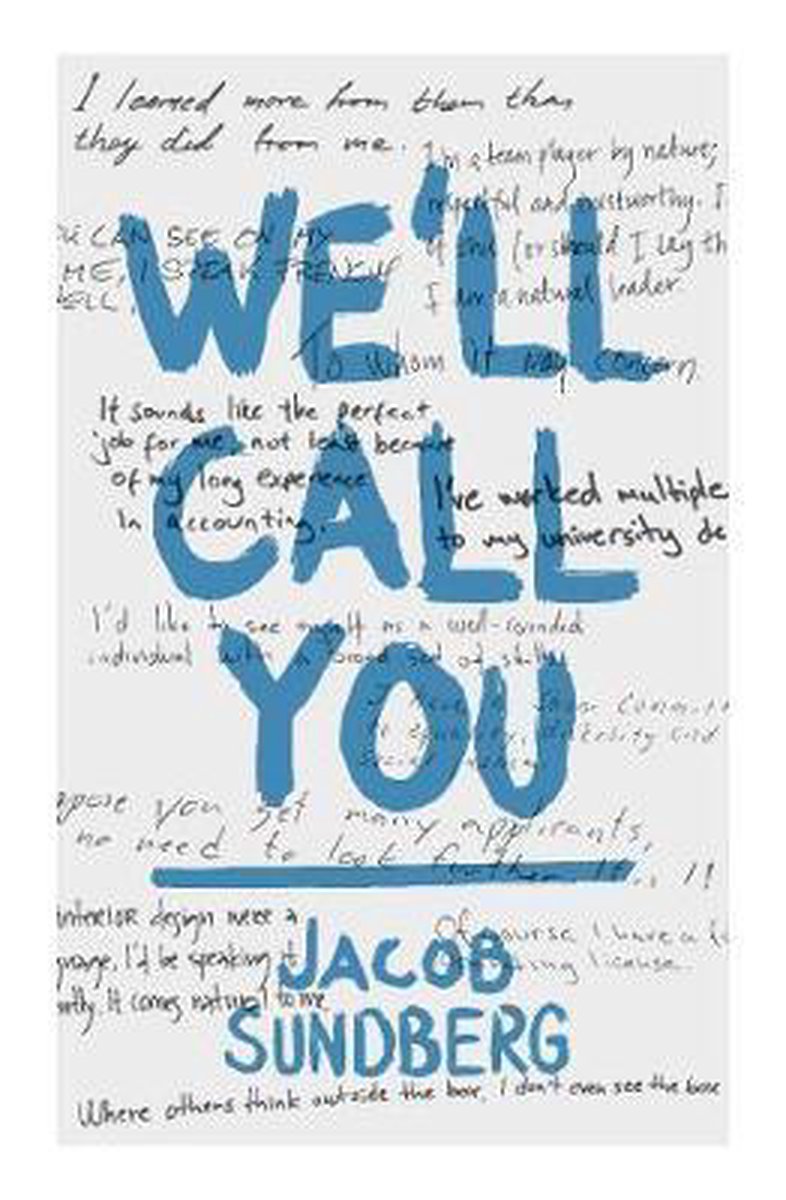 I learned more from them than
they did from me.
I'm a team player by nature;
respectful and trustworthy. I
CAN SEE ON MY
ME, I SPEAK FRENCH
WELL.
of (or should I lay th
I am a natural leader
WE'LL
To whom it may concern
It sounds like the perfect
job for me, not least because
of my long experience
in accounting.
I've worked multiple
to my university de
CALL
I'd like to see myself as a well-rounded
individual with a broad set of skills
YOU
pose you get many applicants,
no need to look further
interior design were a
I'd be speaking it
It comes natural to me
Of course I have a
license.
JACOB
SUNDBERG
Where others think outside the box, I don't even see the box